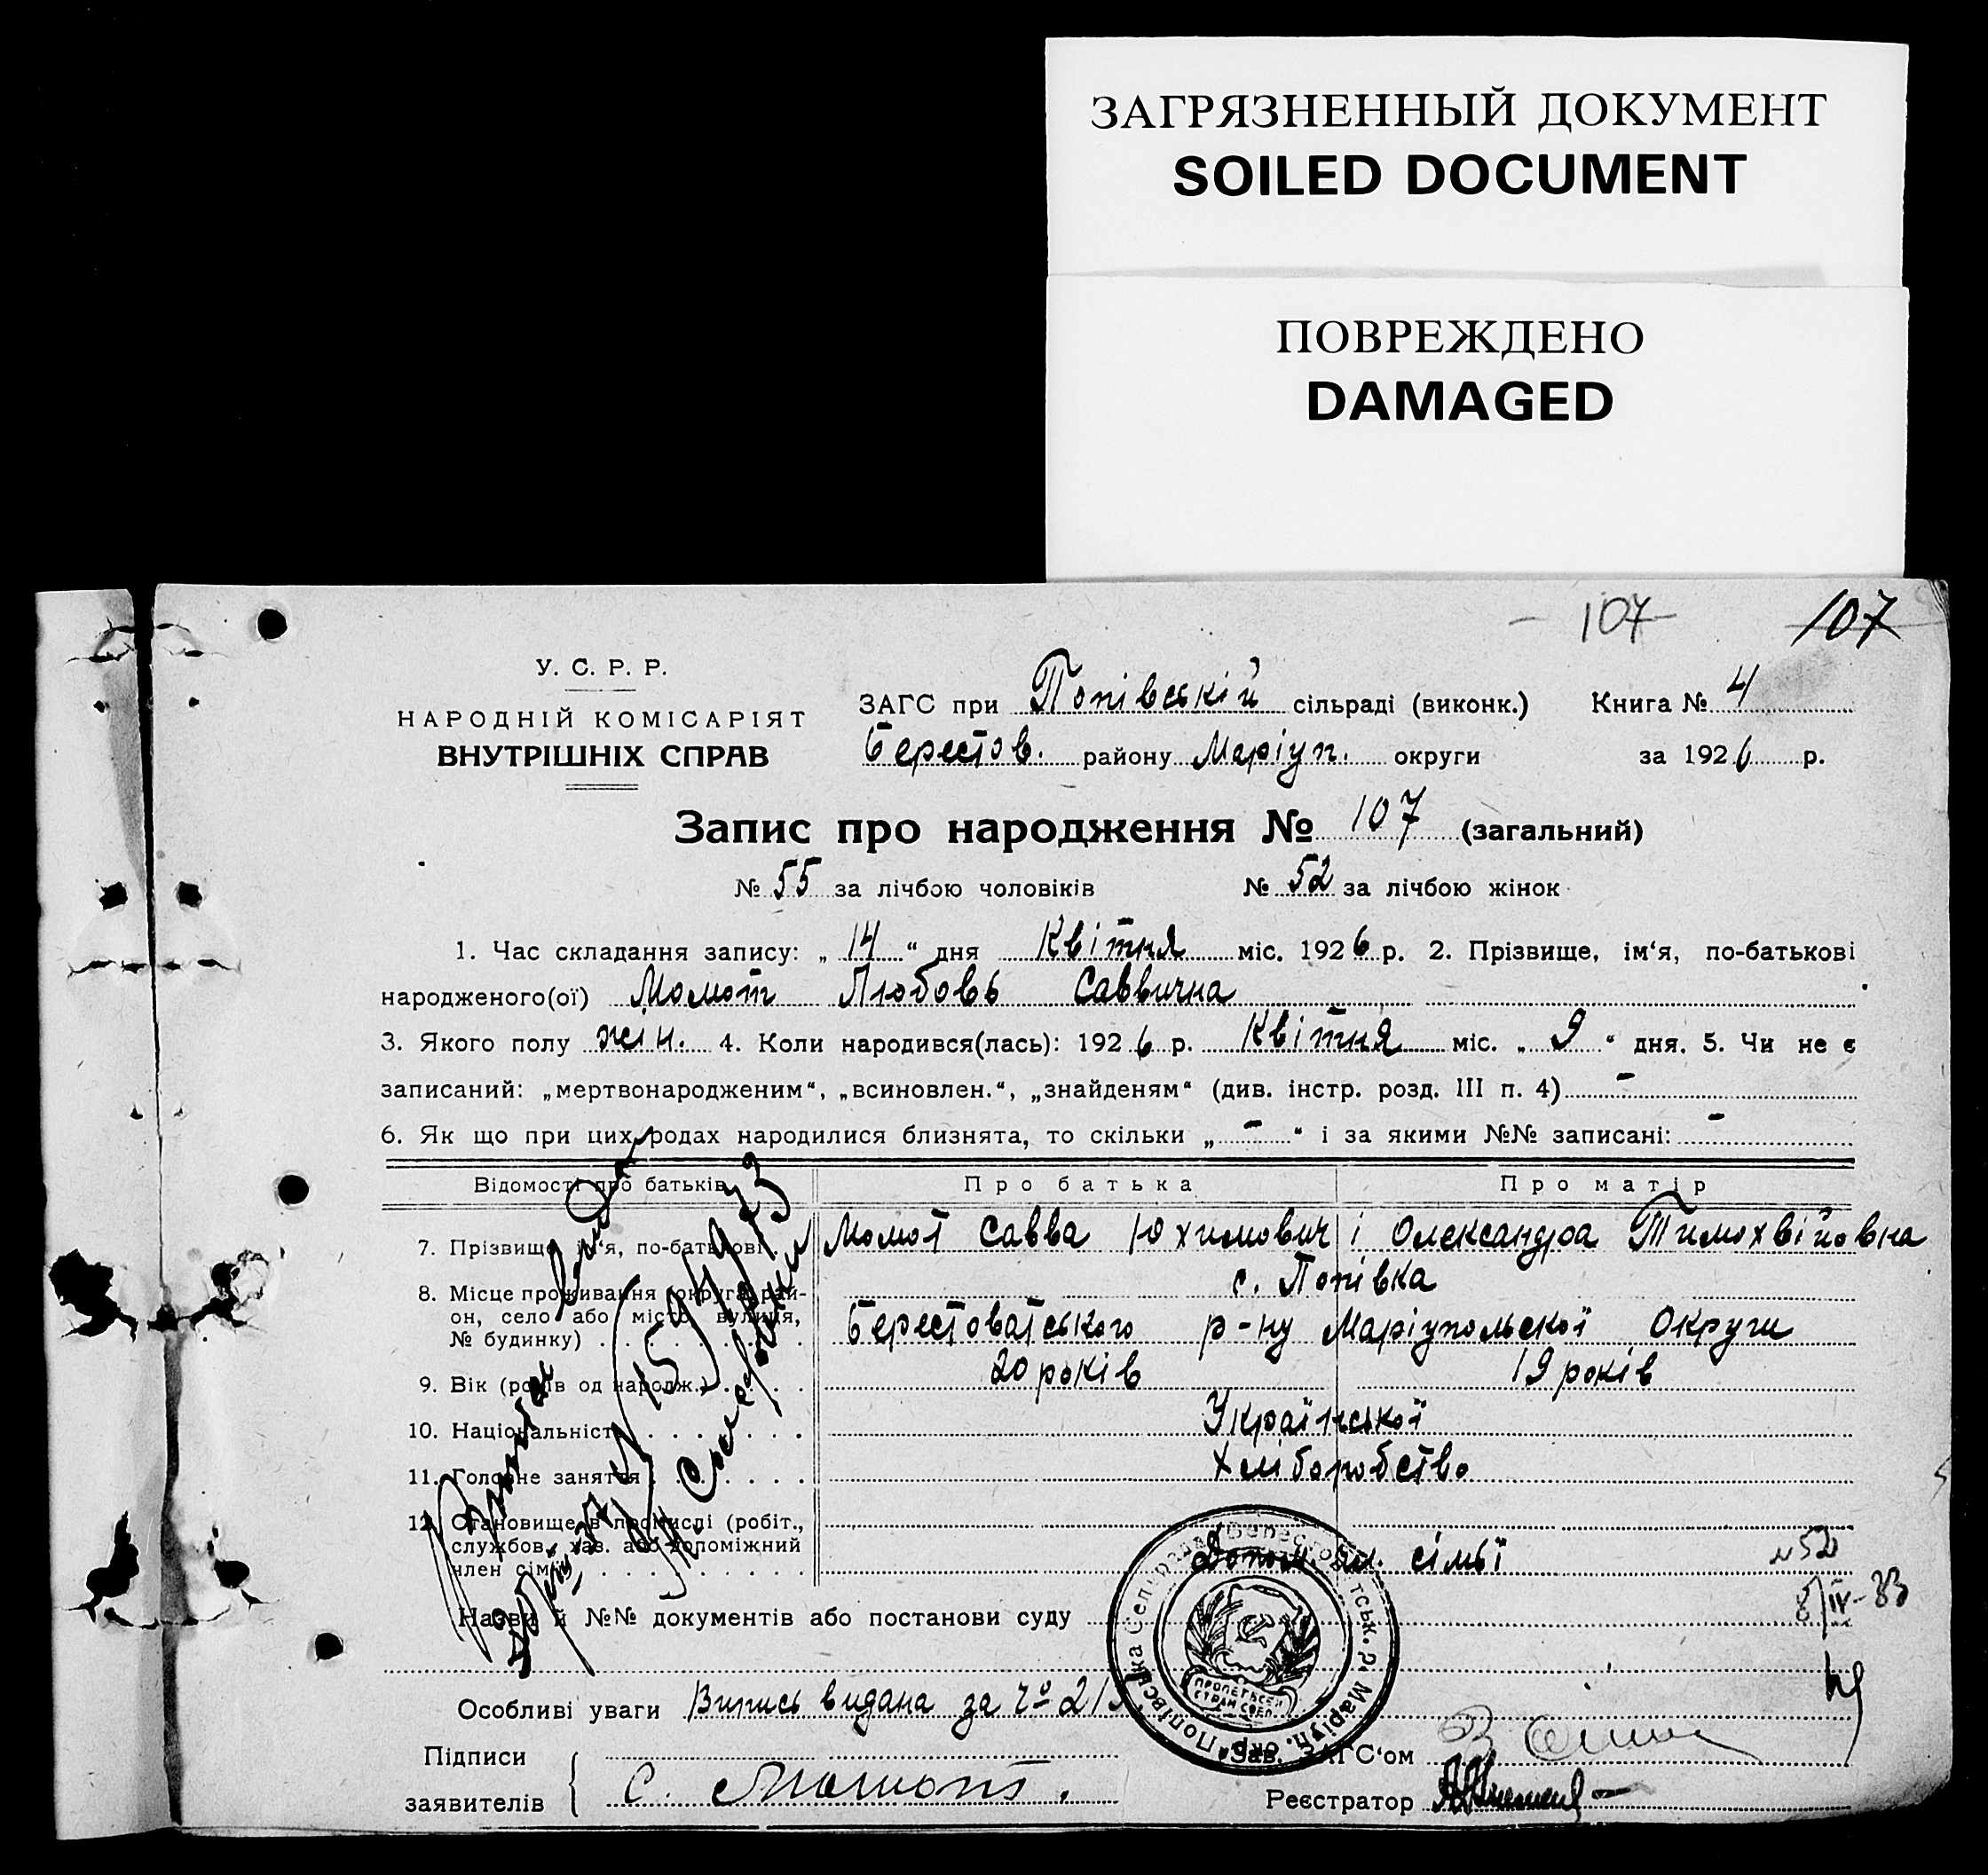 ЗАГРЯЗНЕННЫЙ ДОКУМЕНТ
SOILED DOCUMENT
ПОВРЕЖДЕНО
DAMAGED
- 107 - 107
У. С. Р. Р.
НАРОДНІЙ КОМІСАРІЯТ
ВНУТРІШНІХ СПРАВ
ЗАГС при Попівській сільраді (виконк.) Книга № 4
Берестов. району Маріуп. округи за 1926 р.
Запис про народження № 107 (загальний)
№ 55 за лічбою чоловіків № 52 за лічбою жінок
1. Час складання запису: „ 14 “ дня Квітня міс. 1926 р. 2. Прізвище, ім‘я, по-батькові
народженого(ої) Момот Любовь Саввична
3. Якого полу жін. 4. Коли народився(лась): 1926 р. Квітня міс. „ 9 “ дня. 5. Чи не є
записаний: „мертвонародженим“, „всиновлен.“, „знайденям“ (див. інстр. розд. III п. 4) -
6. Як що при цих родах народилися близнята, то скільки „ - “ і за якими №№ записані: -
Відомості про батьків Про батька Про матір
7. Прізвище, ім‘я, по-батькові Момот Савва Юхимович і Олександра Тимохвійовна
8. Місце проживання (округа, рай- с. Попівка
он, село або місто, вулиця,
№ будинку) Берестоватського р-ну Маріупольскої Округи
9. Вік (років од народж.) 20 років 19 років
10. Національність Української
11. Головне заняття Хліборобство
12. Становище в промислі (робіт.,
службов., хаз. або допоміжний
член сім‘ї) Допом. чл. сімьї
№52
8/IV-33
Назви й №№ документів або постанови суду
Особливі уваги Випись видана за
Підписи
заявителів С. Момот.
Зав. ЗАГС‘ом
Реєстратор
ПРОЛЕТ ВСЕХ
СТРАН СОЕД.